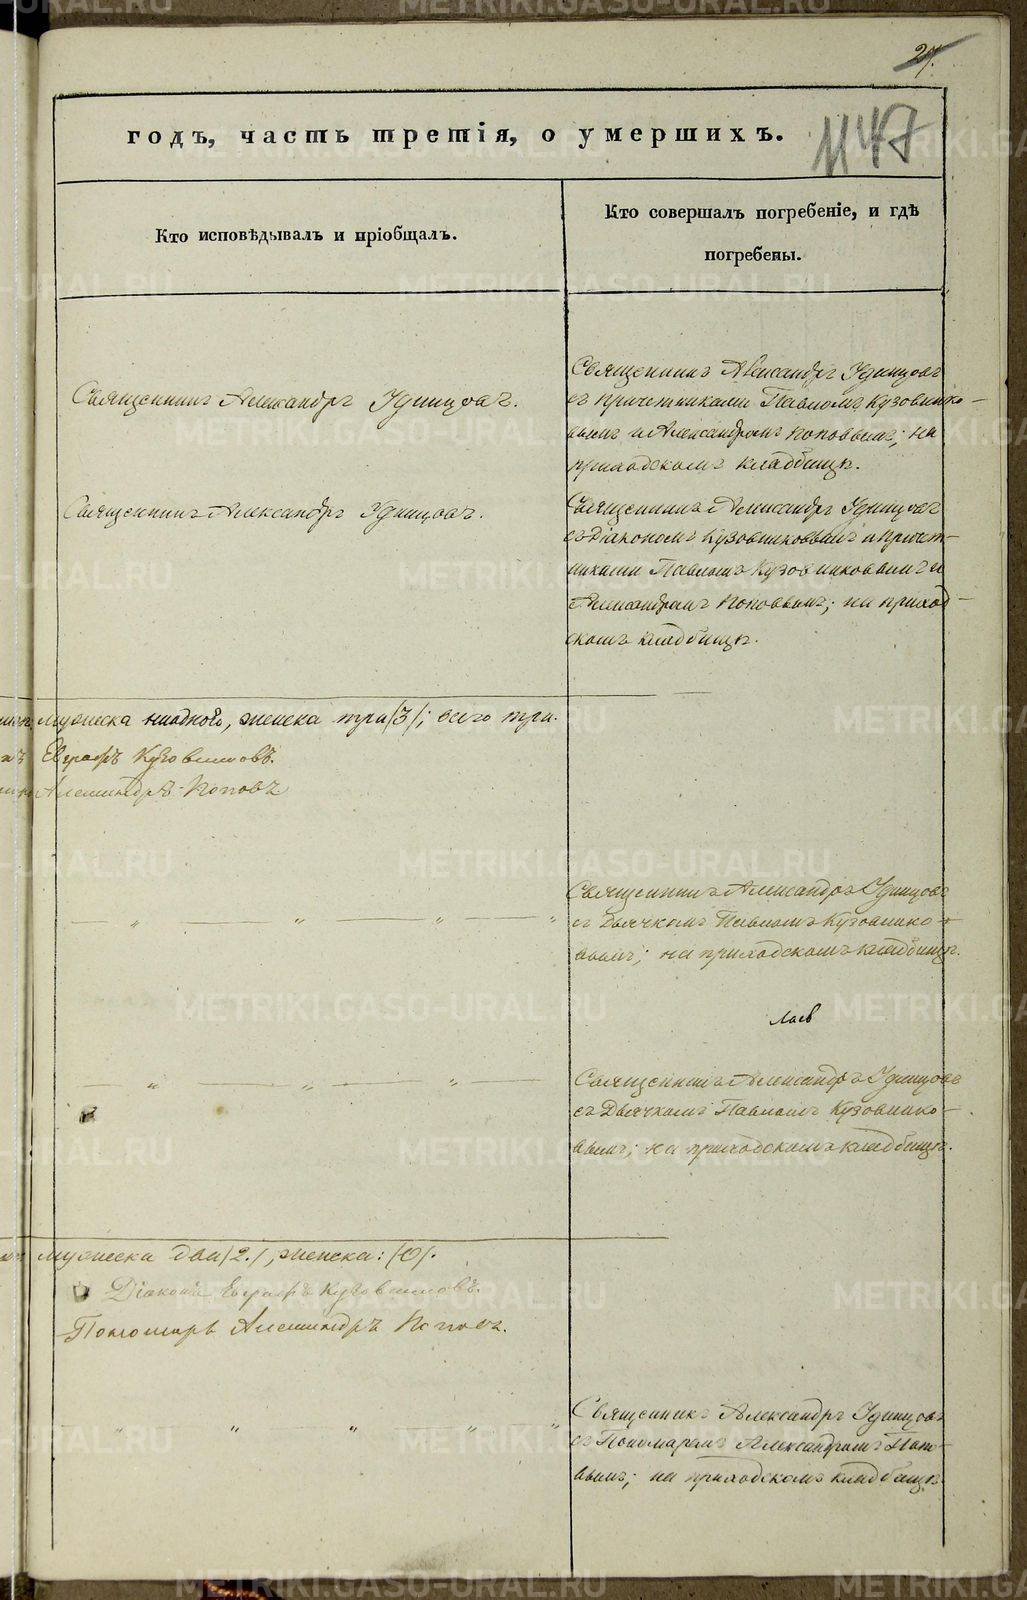 27.
годъ, часть третія, о умершихъ.
1147
Кто исповѣдывалъ и пріобщалъ.
Кто совершалъ погребеніе, и гдѣ
погребены.
Священникъ Александръ Удинцовъ.
Священникъ Александръ Удинцовъ
съ причетниками Павломъ Кузовнико-
вымъ и Александромъ Поповымъ; на
приходскомъ кладбищѣ.
Священникъ Александръ Удинцовъ.
Священникъ Александръ Удинцовъ
съ Діакономъ Кузовниковымъ и причет-
никами Павломъ Кузовниковымъ и
Александромъ Поповымъ; на приход-
скомъ кладбищѣ.
мужеска ниодного, женска три /3/; всего три.
Евграфъ Кузовниковъ.
Александръ Поповъ
Священникъ Александръ Удинцовъ
съ Дьячкомъ Павломъ Кузовнико-
вымъ; на приходскомъ кладбищѣ.
Священникъ Александръ Удинцовъ
съ Дьячкомъ Павломъ Кузовнико-
вымъ; на приходскомъ кладбищѣ.
мужеска два /2./, женска: /0/.
Діаконъ Евграфъ Кузовниковъ.
Пономарь Александръ Поповъ.
Священникъ Александръ Удинцовъ
съ Пономаремъ Александромъ Попо-
вымъ; на приходскомъ кладбищѣ.
METRIKI.GASO-URAL.RU